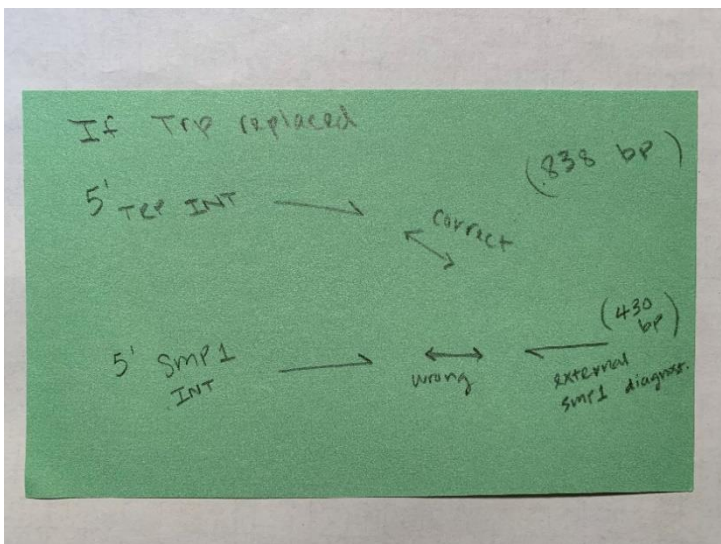 If Trp replaced
(838 bp)
5' TRP INT
correct
5' SMP1
INT
wrong
(430
bp)
external
SMP1 diagnos.